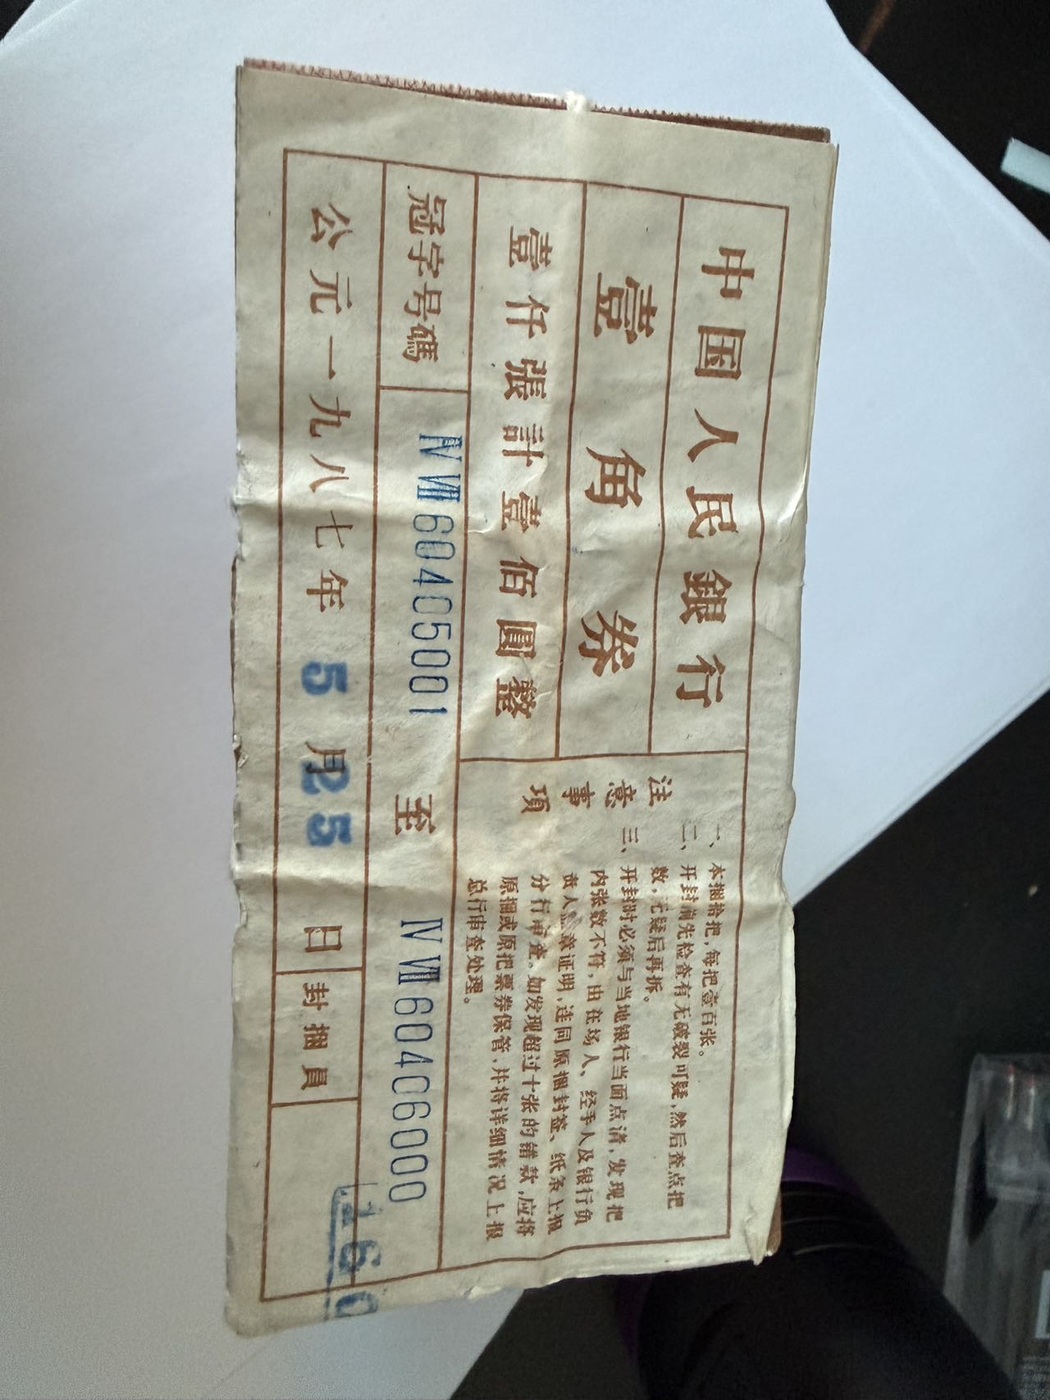 中国人民銀行
壹角券
壹仟張計壹佰圓整
注意事項
一、本捆拾把，每把壹百张。
二、开封前先检查有无破裂可疑，然后查点把
数，无疑后再拆。
三、开封时必须与当地银行当面点清，发现把
内张数不符，由在场人、经手人及银行负
责人盖章证明，连同原捆封签、纸条上报
分行审查。如发现超过十张的错款，应将
原捆或原把票券保管，并将详细情况上报
总行审查处理。
冠字号碼 ⅣⅦ60405001 至 ⅣⅦ60406000
公元一九八七年5月25日 封捆員
160